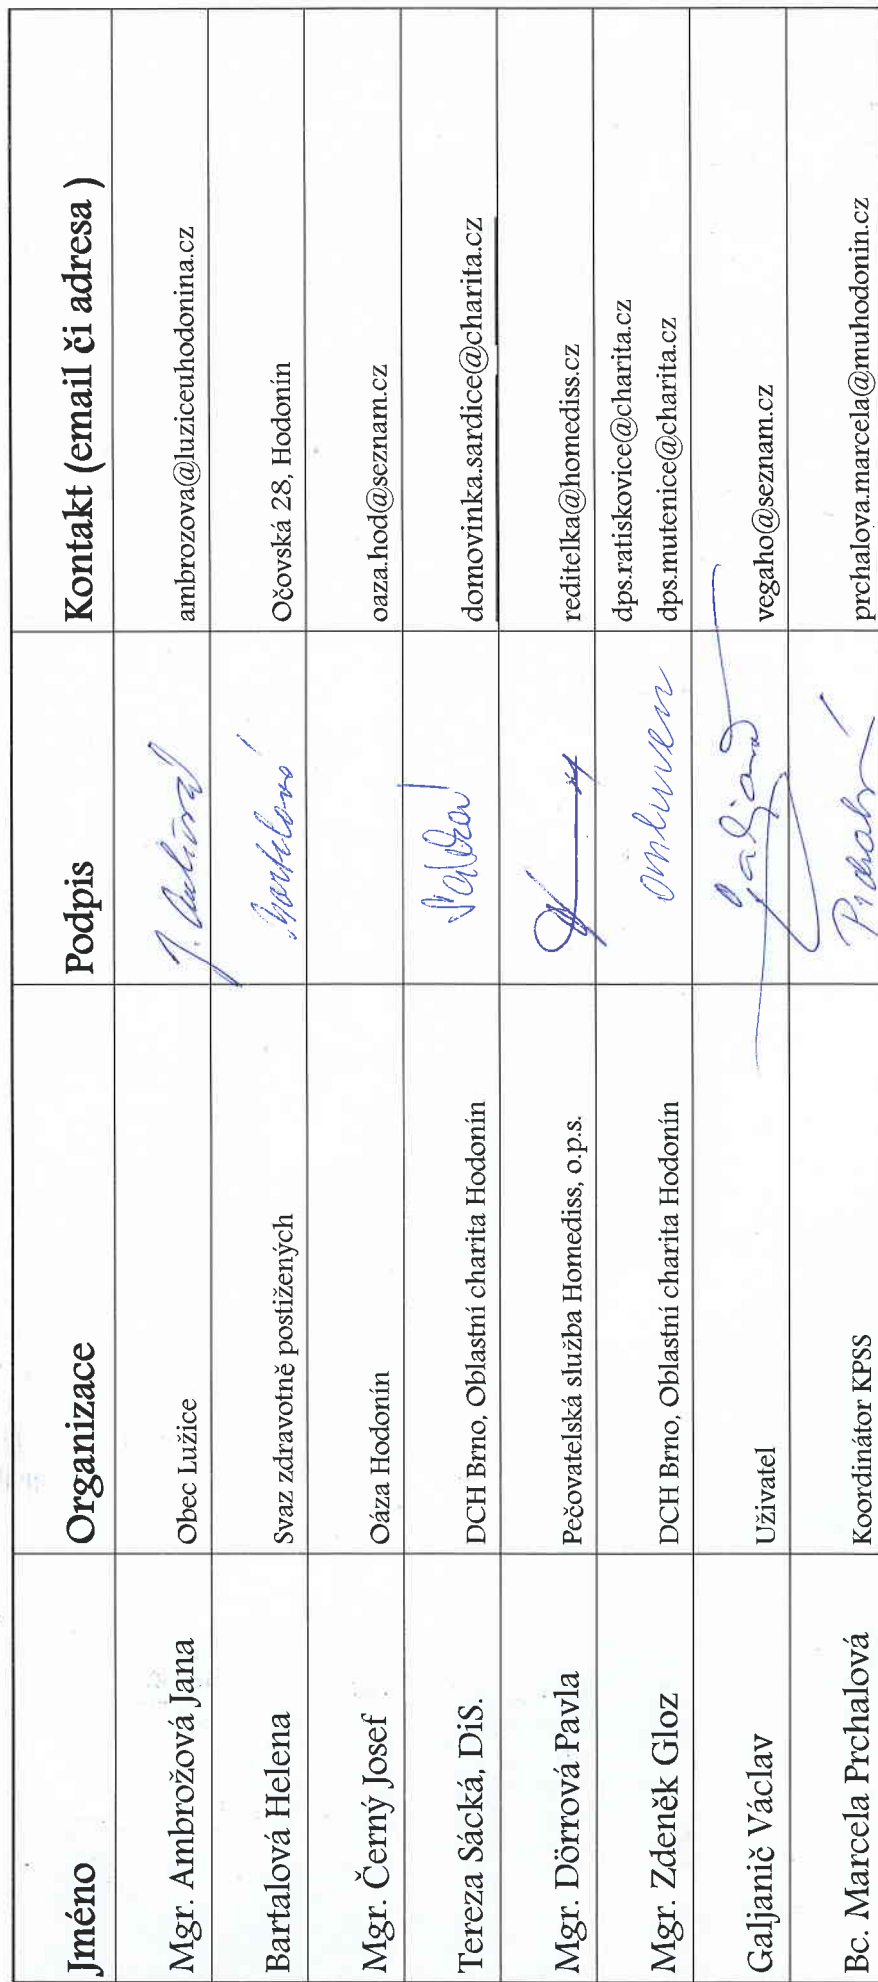 Jméno Organizace Podpis Kontakt (email či adresa )
Mgr. Ambrožová Jana Obec Lužice ambrozova@luziceuhodonina.cz
Bartalová Helena Svaz zdravotně postižených Očovská 28, Hodonín
Mgr. Černý Josef Oáza Hodonín oaza.hod@seznam.cz
Tereza Sácká, DiS. DCH Brno, Oblastní charita Hodonín domovinka.sardice@charita.cz
Mgr. Dörrová Pavla Pečovatelská služba Homediss, o.p.s. reditelka@homediss.cz
dps.ratiskovice@charita.cz
Mgr. Zdeněk Gloz DCH Brno, Oblastní charita Hodonín omluven dps.mutenice@charita.cz
Galjanič Václav Uživatel vegaho@seznam.cz
Bc. Marcela Prchalová Koordinátor KPSS prchalova.marcela@muhodonin.cz